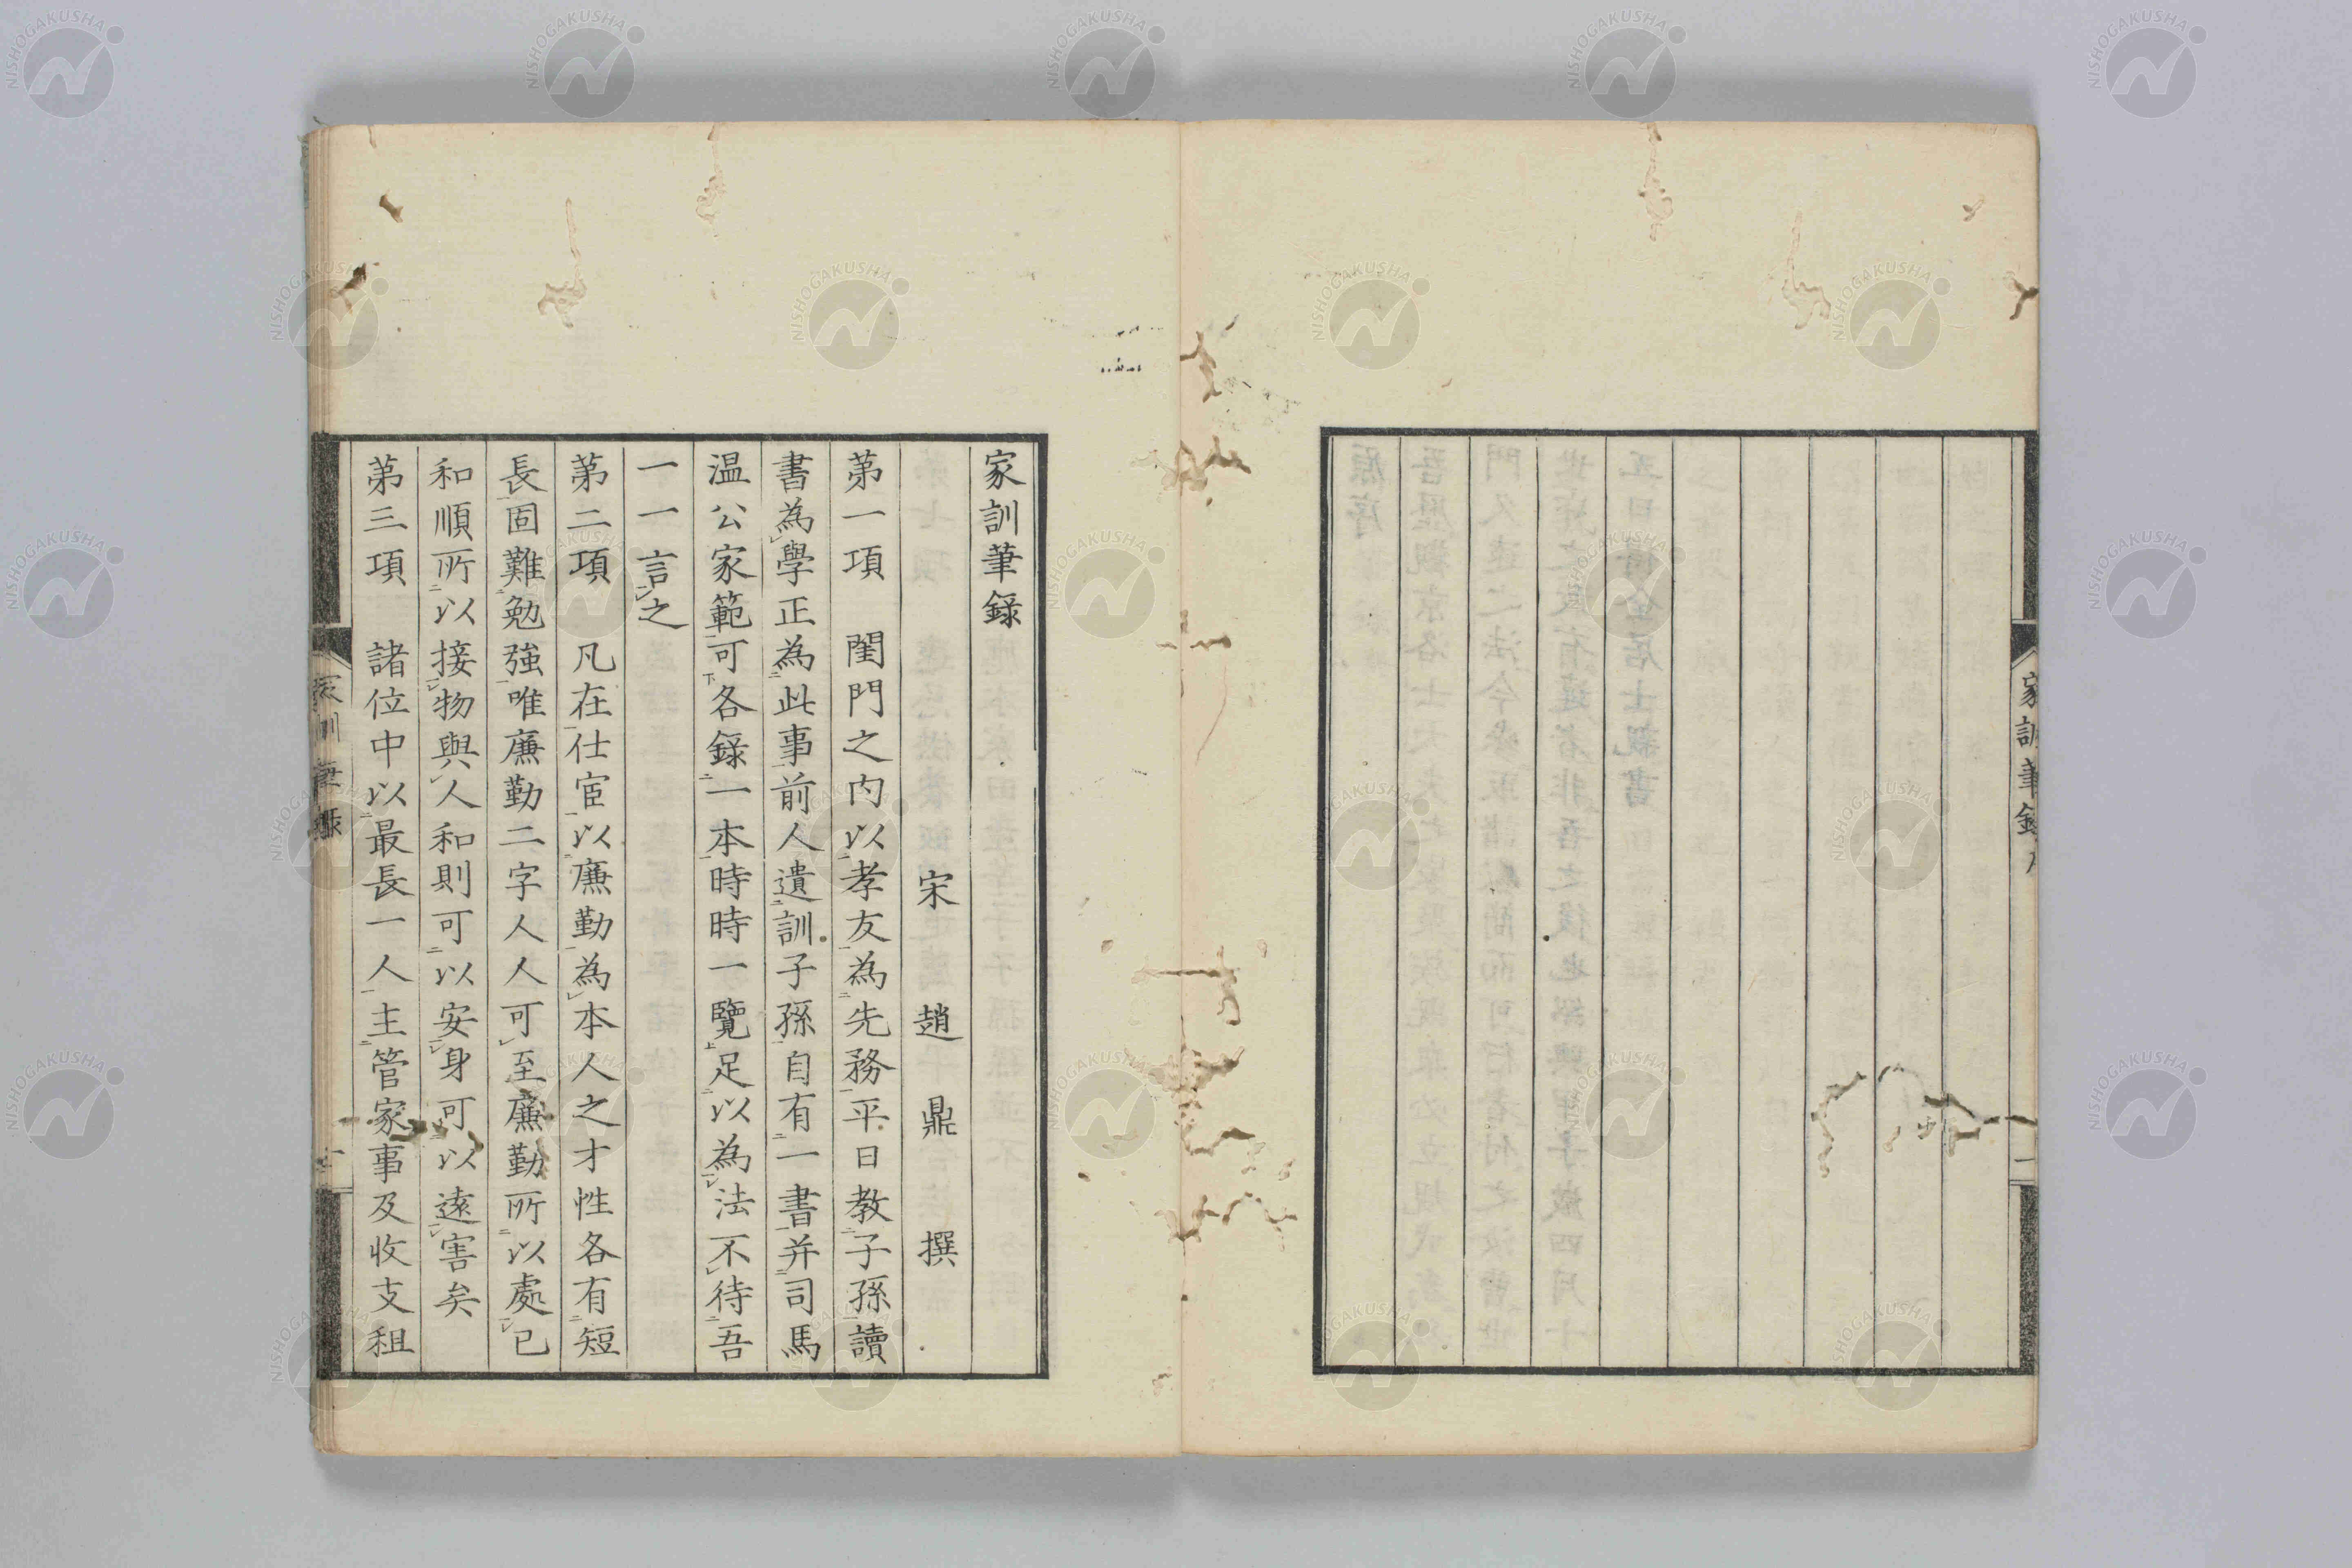 家訓筆錄
一
家訓筆錄
宋 趙 鼎 撰
第一項 閨門之内以孝友為先務平日教子孫讀
書為學正為此事前人遺訓子孫自有一書并司馬
温公家範可各錄一本時時一覽足以為法不待吾
一一言之
第二項 凡在仕宦以廉勤為本人之才性各有短
長固難勉強唯廉勤二字人人可至廉勤所以處已
和順所以接物與人和則可以安身可以遠害矣
第三項 諸位中以最長一人主管家事及收支租
家訓筆錄
NISHOGAKUSHA